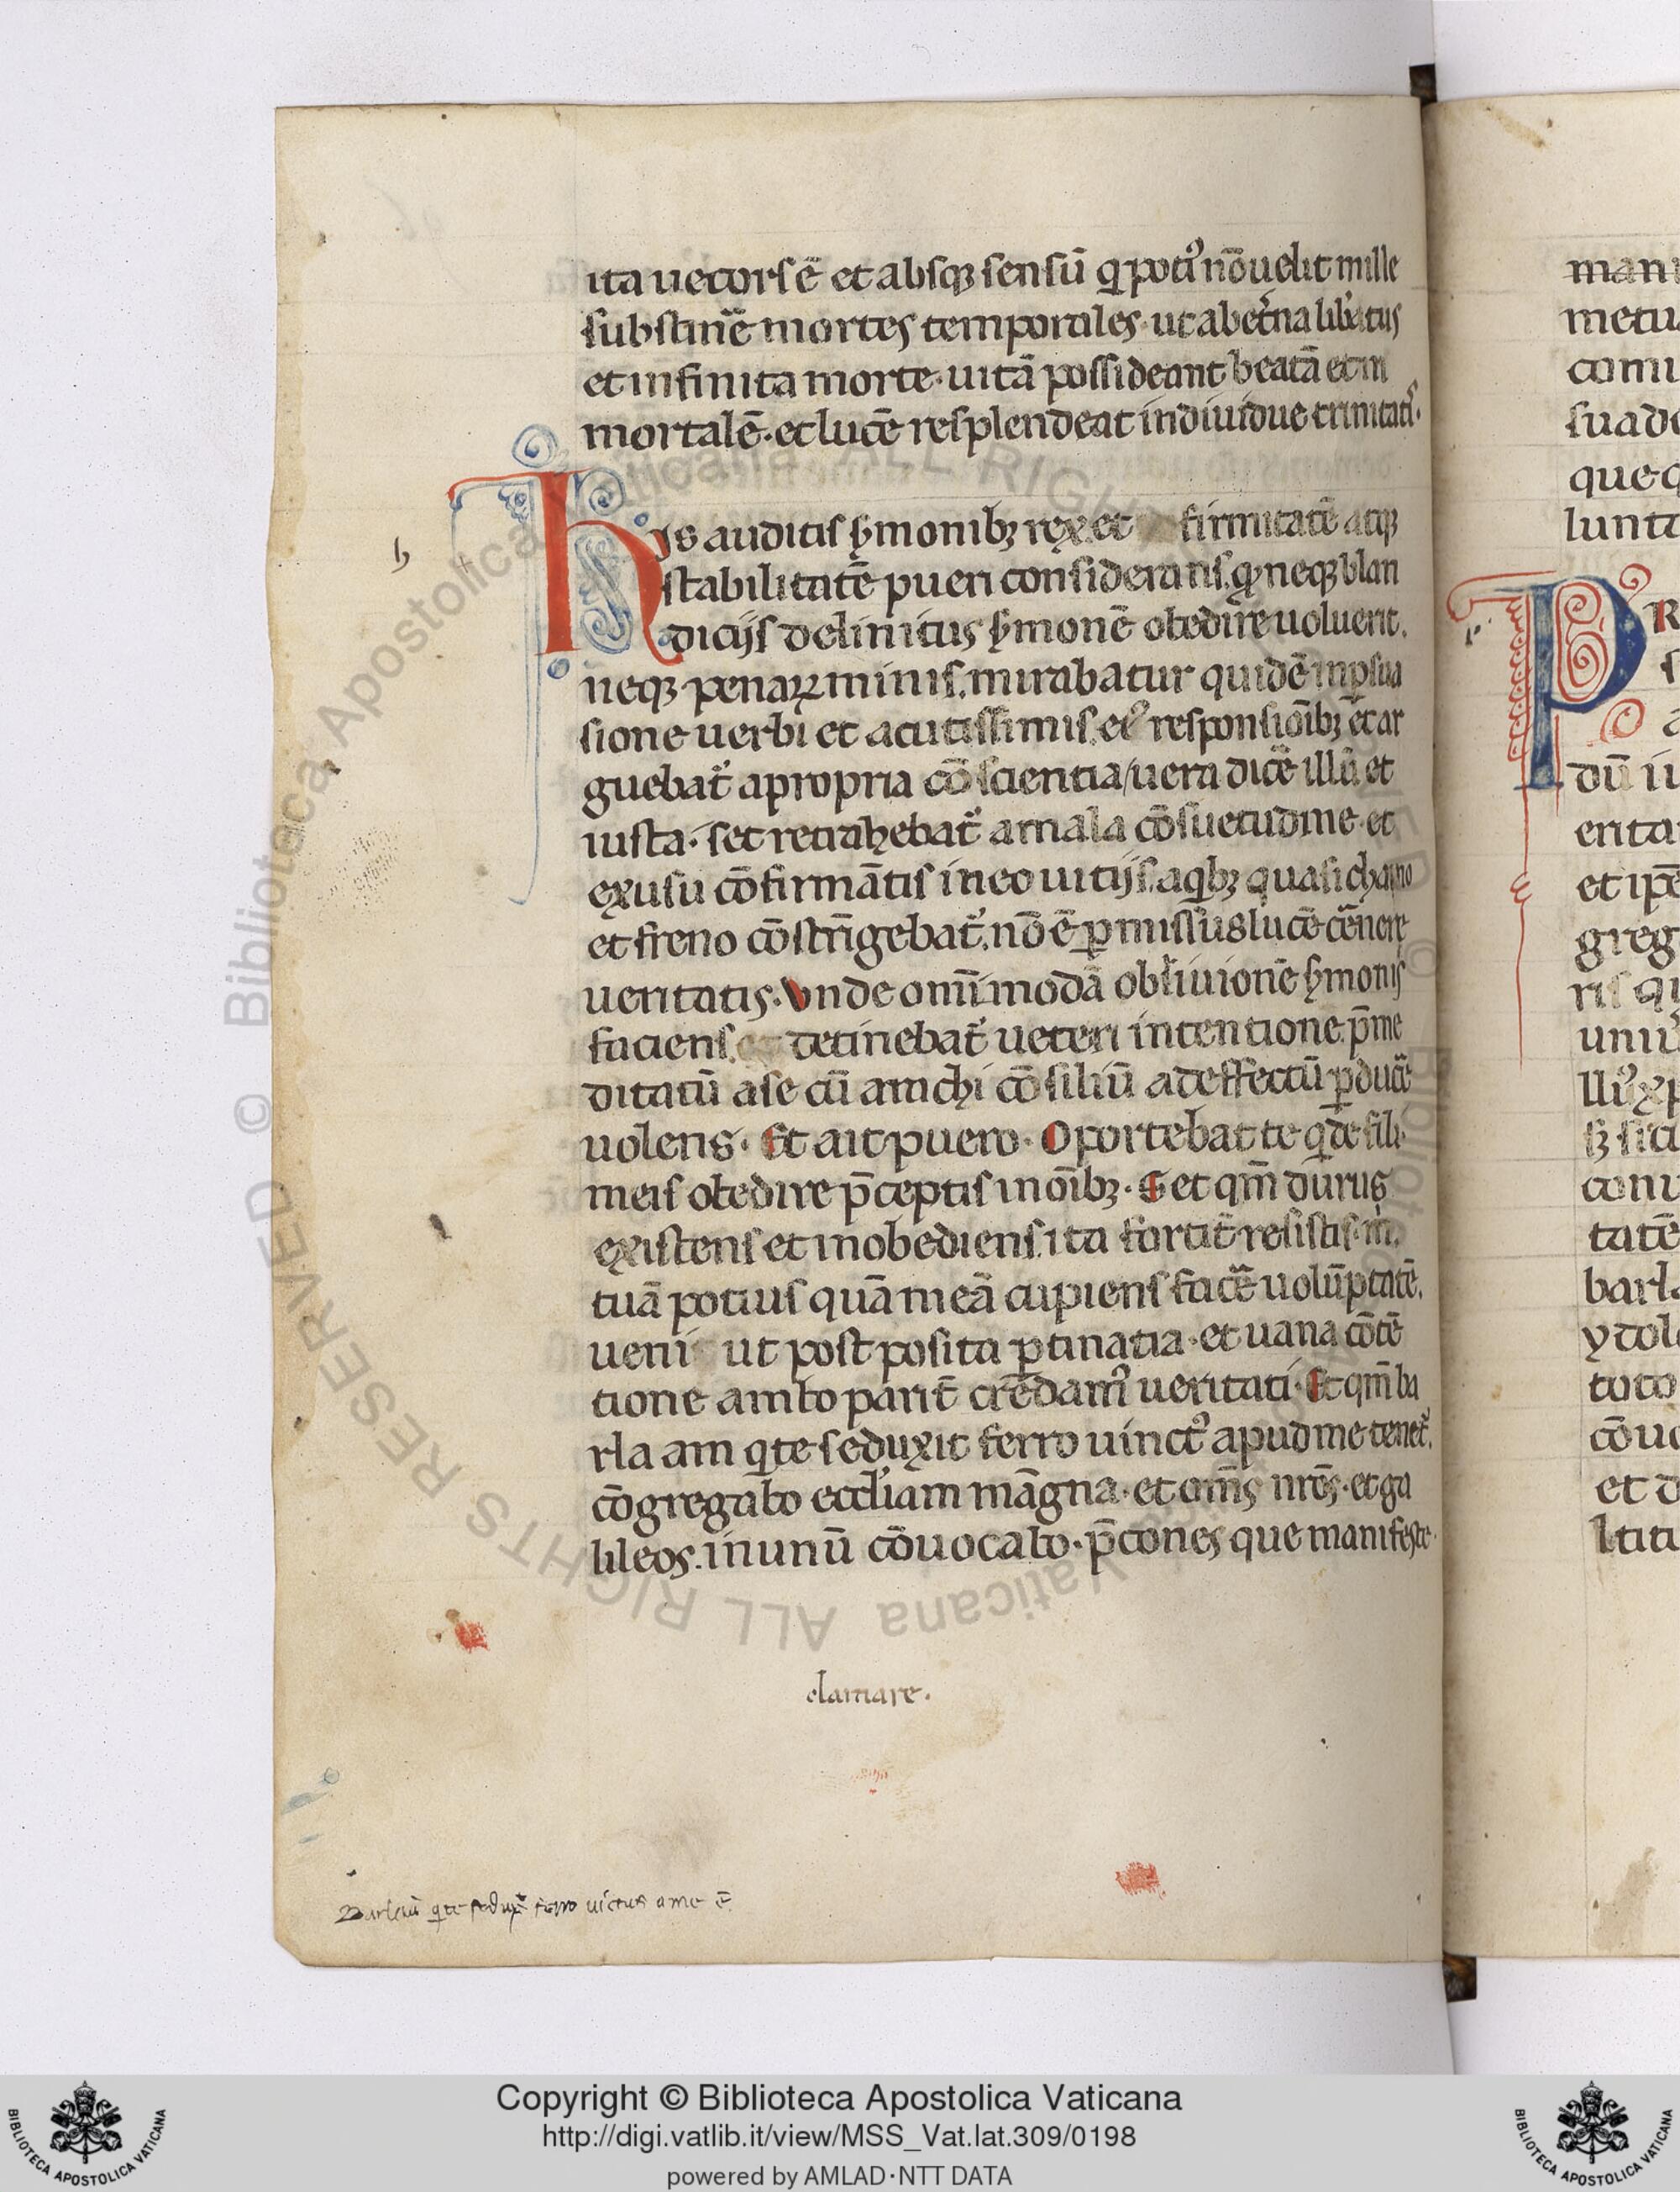 ita uecors ē et absqꝫ sensū q̇ potiꝰ nō uelit mille
substinē mortes temporales· ut ab et̉na lib̉atus
et infinita morte· uitā possideant beatā et in
mortalē· et lucē resplendeat indiuidue trinitatis·
his auditis s̉monibꝫ rex et firmitatē atqꝫ
stabilitatē pueri considerans. q neqꝫ blan
dicijs delinitus s̉monē obedire uoluerit.
neqꝫ penaꝝ minis. mirabatur quidē in ꝑsua
sione uerbi et acutissimis eiꝰ responsiōibꝫ et ar
guebat̉ a propria cōscientia uera dicē illū et
iusta· set retrahebat̉ a mala cōsuetudine et
ex usu cōfirmātis in eo uitijs. a qbꝫ quasi chamo
et freno cōstrīgebat̉. nō ē ꝑmissus lucē cēnere
ueritatis. Vnde omīmodā obliuionē s̉monis
faciens. detinebat̉ ueteri intentione. p̄me
ditatū a se cū arachi cōsiliū ad effectū ꝑducē
uolens. Et ait puero. Oportebat te qdē fili
meis obedire p̄ceptis in oībꝫ. Set qm̄ durus
existens et inobediens. ita fortit̉ resistis m.
tuā potius quā meā cupiens facē uolūptatē.
ueni ut post posita ꝑtinatia· et uana cōtē
tione ambo parit̉ credamꝰ ueritati. Et qm̄ ba
rlaam q te seduxit ferro uinctꝰ apud me tenet̉.
cōgregabo eccl̉iam māgna· et om̄s nr̄os· et ga
lileos. in unū cōuocabo· p̄cones que manifeste
clamare.
Barlaā q te sedux̉ ferro uictus a me ē.
manu
metu
comu
suad
que q
lunta
PR
dū i
erita
et ip̄e
greg
ris qu
conu
tatē
barla
ydol
toto
cōuo
et d
ltitu
Copyright © Biblioteca Apostolica Vaticana
http://digi.vatlib.it/view/MSS_Vat.lat.309/0198
powered by AMLAD·NTT DATA
BIBLIOTECA APOSTOLICA VATICANA
BIBLIOTECA APOSTOLICA VATICANA
© Biblioteca Apostolica Vaticana ALL RIGHTS RESERVED